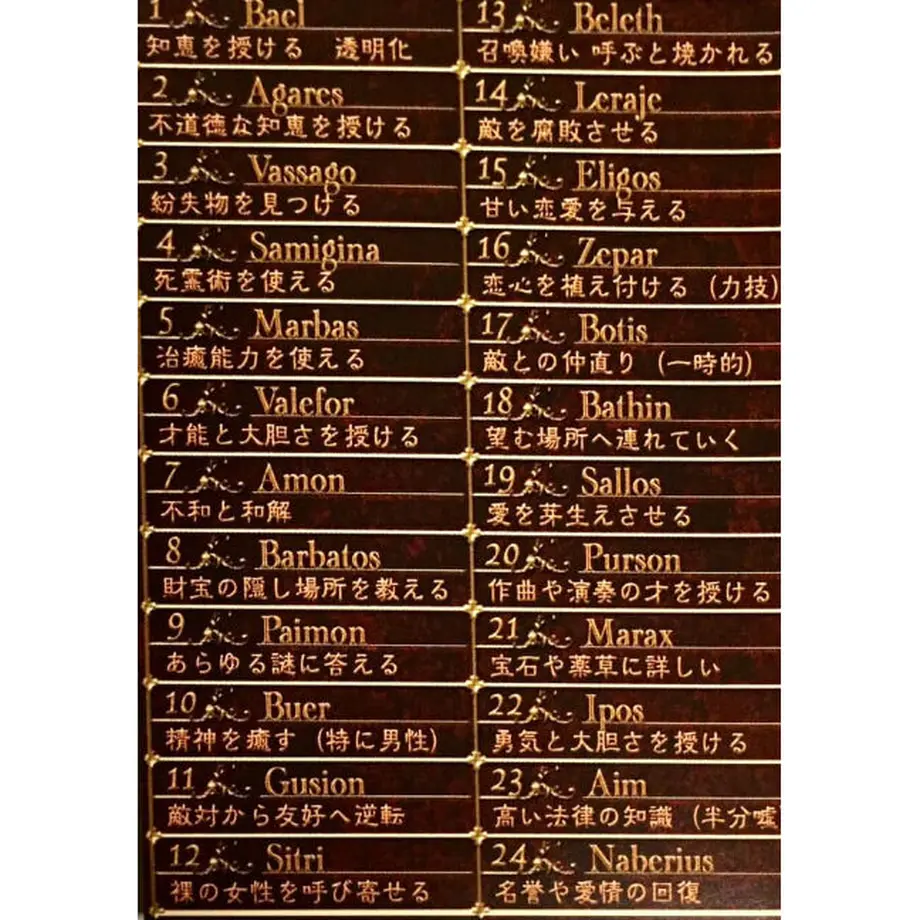 1 Bael
知恵を授ける 透明化
2 Agares
不道徳な知恵を授ける
3 Vassago
紛失物を見つける
4 Samigina
死霊術を使える
5 Marbas
治癒能力を使える
6 Valefor
才能と大胆さを授ける
7 Amon
不和と和解
8 Barbatos
財宝の隠し場所を教える
9 Paimon
あらゆる謎に答える
10 Buer
精神を癒す (特に男性)
11 Gusion
敵対から友好へ逆転
12 Sitri
裸の女性を呼び寄せる
13 Beleth
召喚嫌い 呼ぶと焼かれる
14 Leraje
敵を腐敗させる
15 Eligos
甘い恋愛を与える
16 Zepar
恋心を植え付ける (力技)
17 Botis
敵との仲直り (一時的)
18 Bathin
望む場所へ連れていく
19 Sallos
愛を芽生えさせる
20 Purson
作曲や演奏の才を授ける
21 Marax
宝石や薬草に詳しい
22 Ipos
勇気と大胆さを授ける
23 Aim
高い法律の知識 (半分嘘
24 Naberius
名誉や愛情の回復